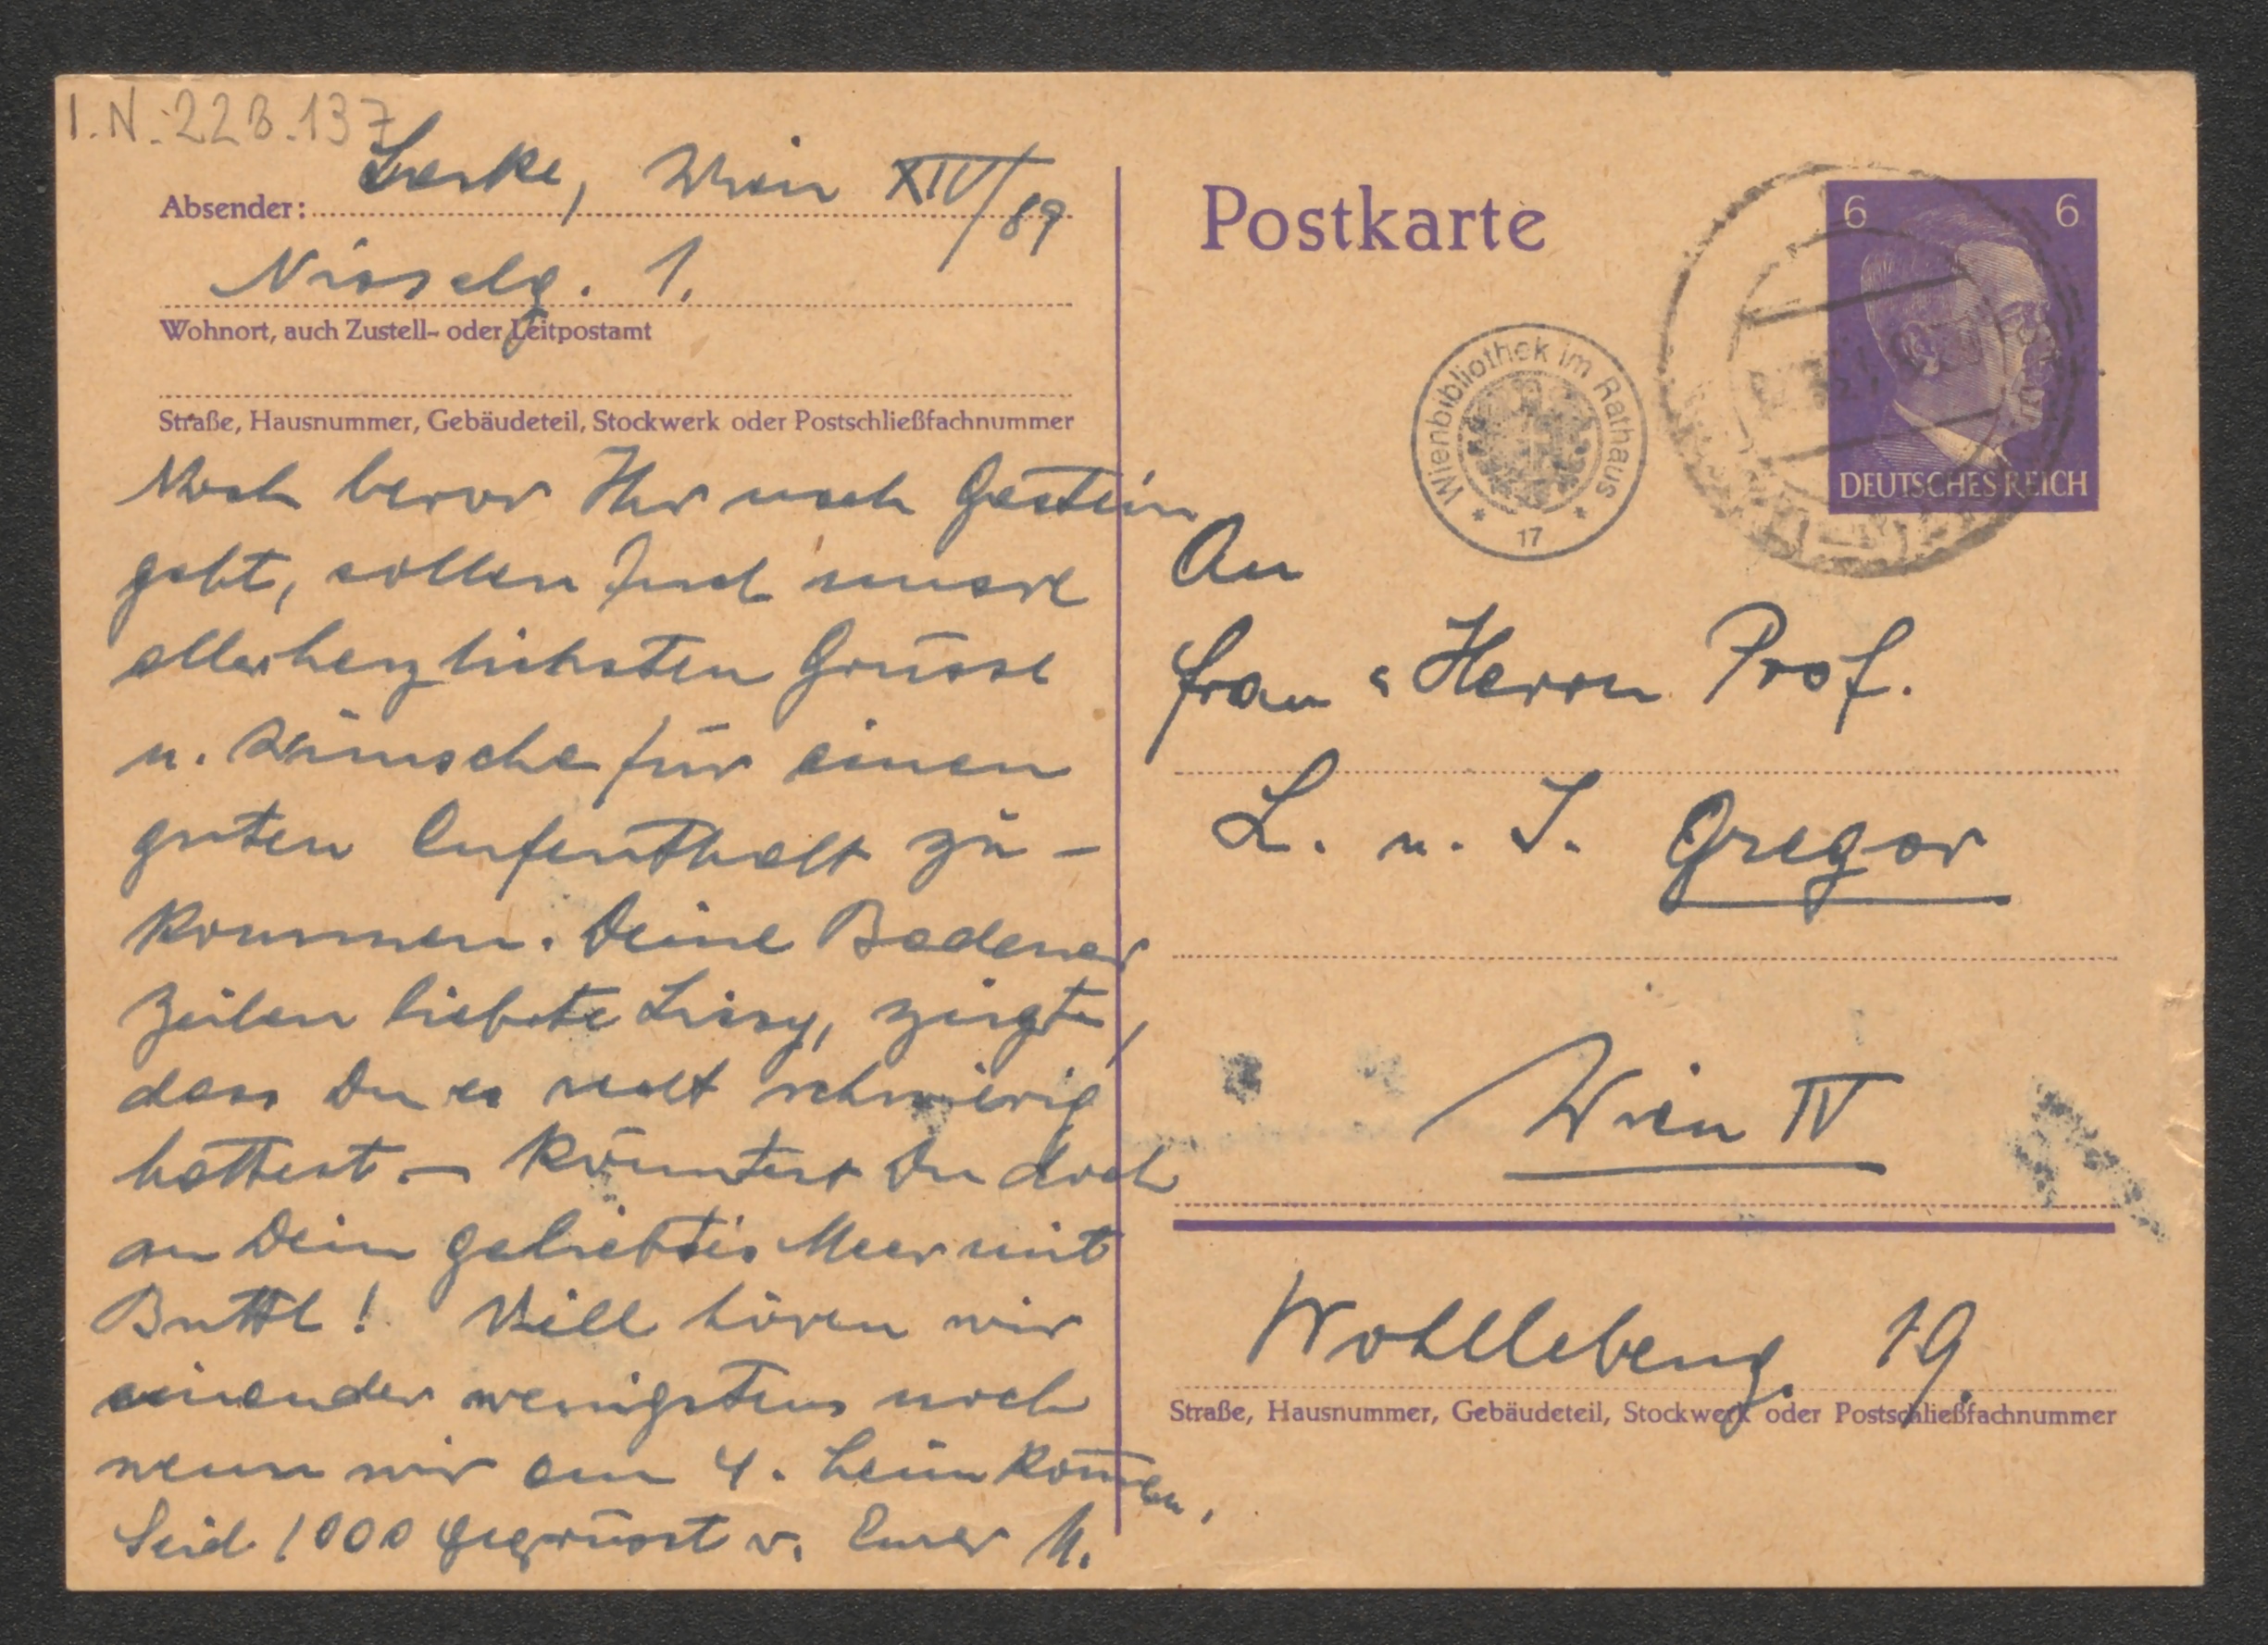 I.N. 228.137
Leske, Wien XIV/89
Absender:
Nisselg. 1.
Wohnort, auch Zustell- oder Leitpostamt
Straße, Hausnummer, Gebäudeteil, Stockwerk oder Postschließfachnummer
Noch bevor Ihr nach Gastein
geht, sollen Euch unsre
allerherzlichsten Grüsse
u. Wünsche für einen
guten Aufenthalt zu-
kommen. Deine Badener
Zeilen liebste Lissy, zeigten,
dass Du es recht schwierig
hattest – könntest Du doch
an Dein geliebtes Meer mit
! hören wir
einander wenigstens noch
wenn wir am 4. heimkom̅en.
Seid 1000 gegrüsst v. Eurer M.
Postkarte
6 6
DEUTSCHES REICH
Wienbibliothek im Rathaus
* 17 *
An
Frau & Herrn Prof.
L. u. J. Gregor
Wien IV
Wohllebeng. 19.
Straße, Hausnummer, Gebäudeteil, Stockwerk oder Postschließfachnummer